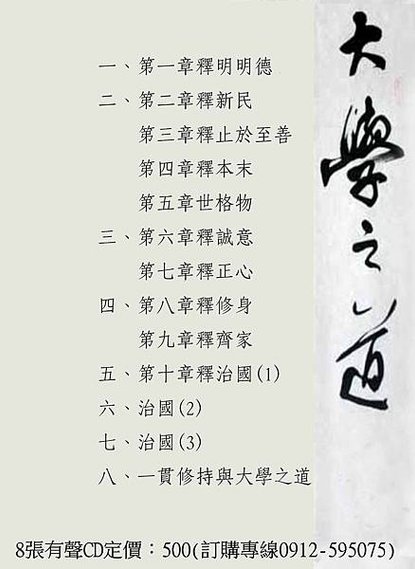 大學之道
一、第一章釋明明德
二、第二章釋新民
第三章釋止於至善
第四章釋本末
第五章世格物
三、第六章釋誠意
第七章釋正心
四、第八章釋修身
第九章釋齊家
五、第十章釋治國(1)
六、治國(2)
七、治國(3)
八、一貫修持與大學之道
8張有聲CD定價：500(訂購專線0912-595075)